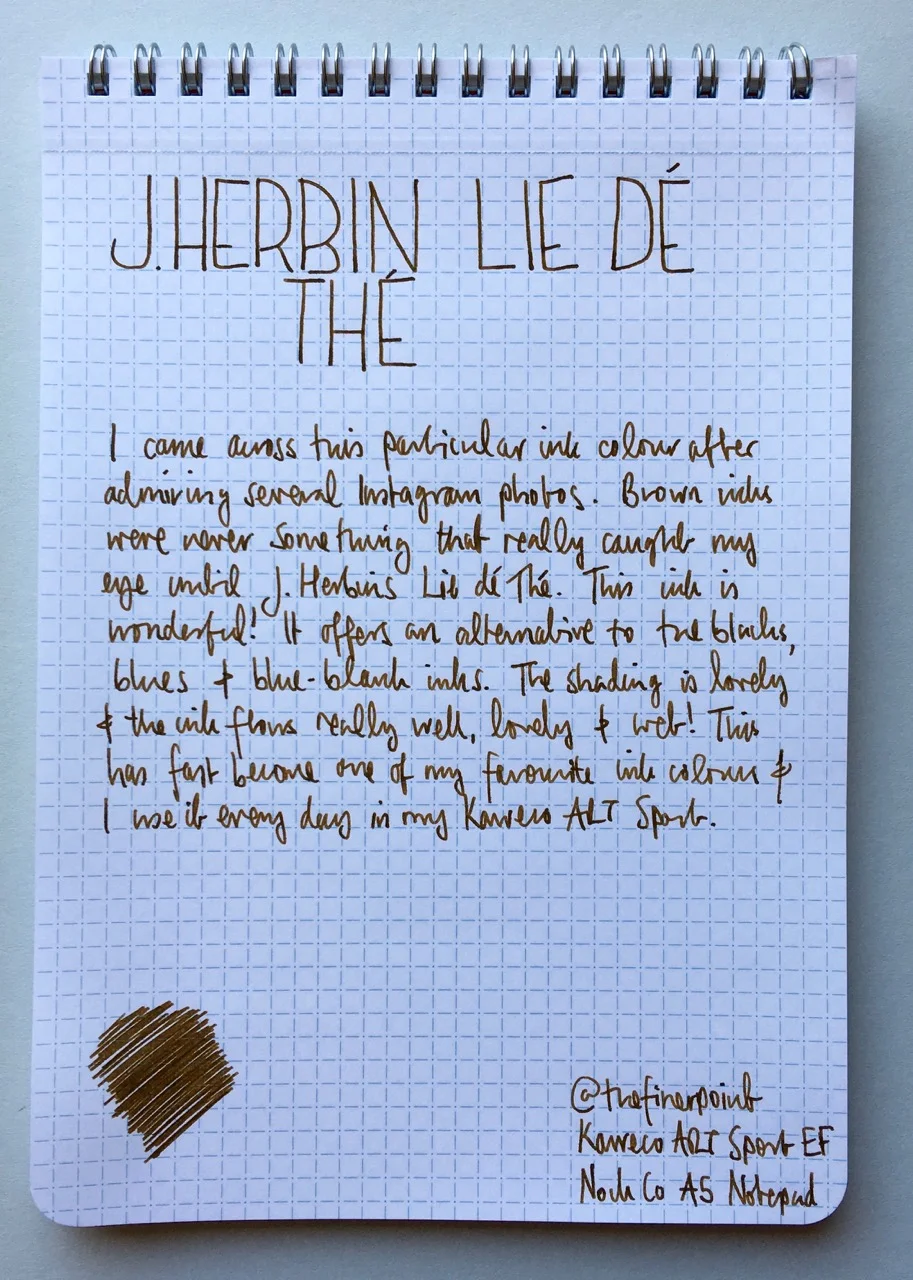 J.HERBIN LIE DÉ
THÉ
I came across this particular ink colour after
admiring several Instagram photos. Brown inks
were never something that really caught my
eye until J.Herbins Lie dé Thé. This ink is
wonderful! It offers an alternative to the blacks,
blues & blue-blank inks. The shading is lovely
& the ink flows really well, lovely & wet! This
has fast become one of my favourite ink colours &
I use it every day in my Kaweco ART Sport.
@thefinerpoint
Kaweco ART Sport EF
Nock Co A5 Notepad